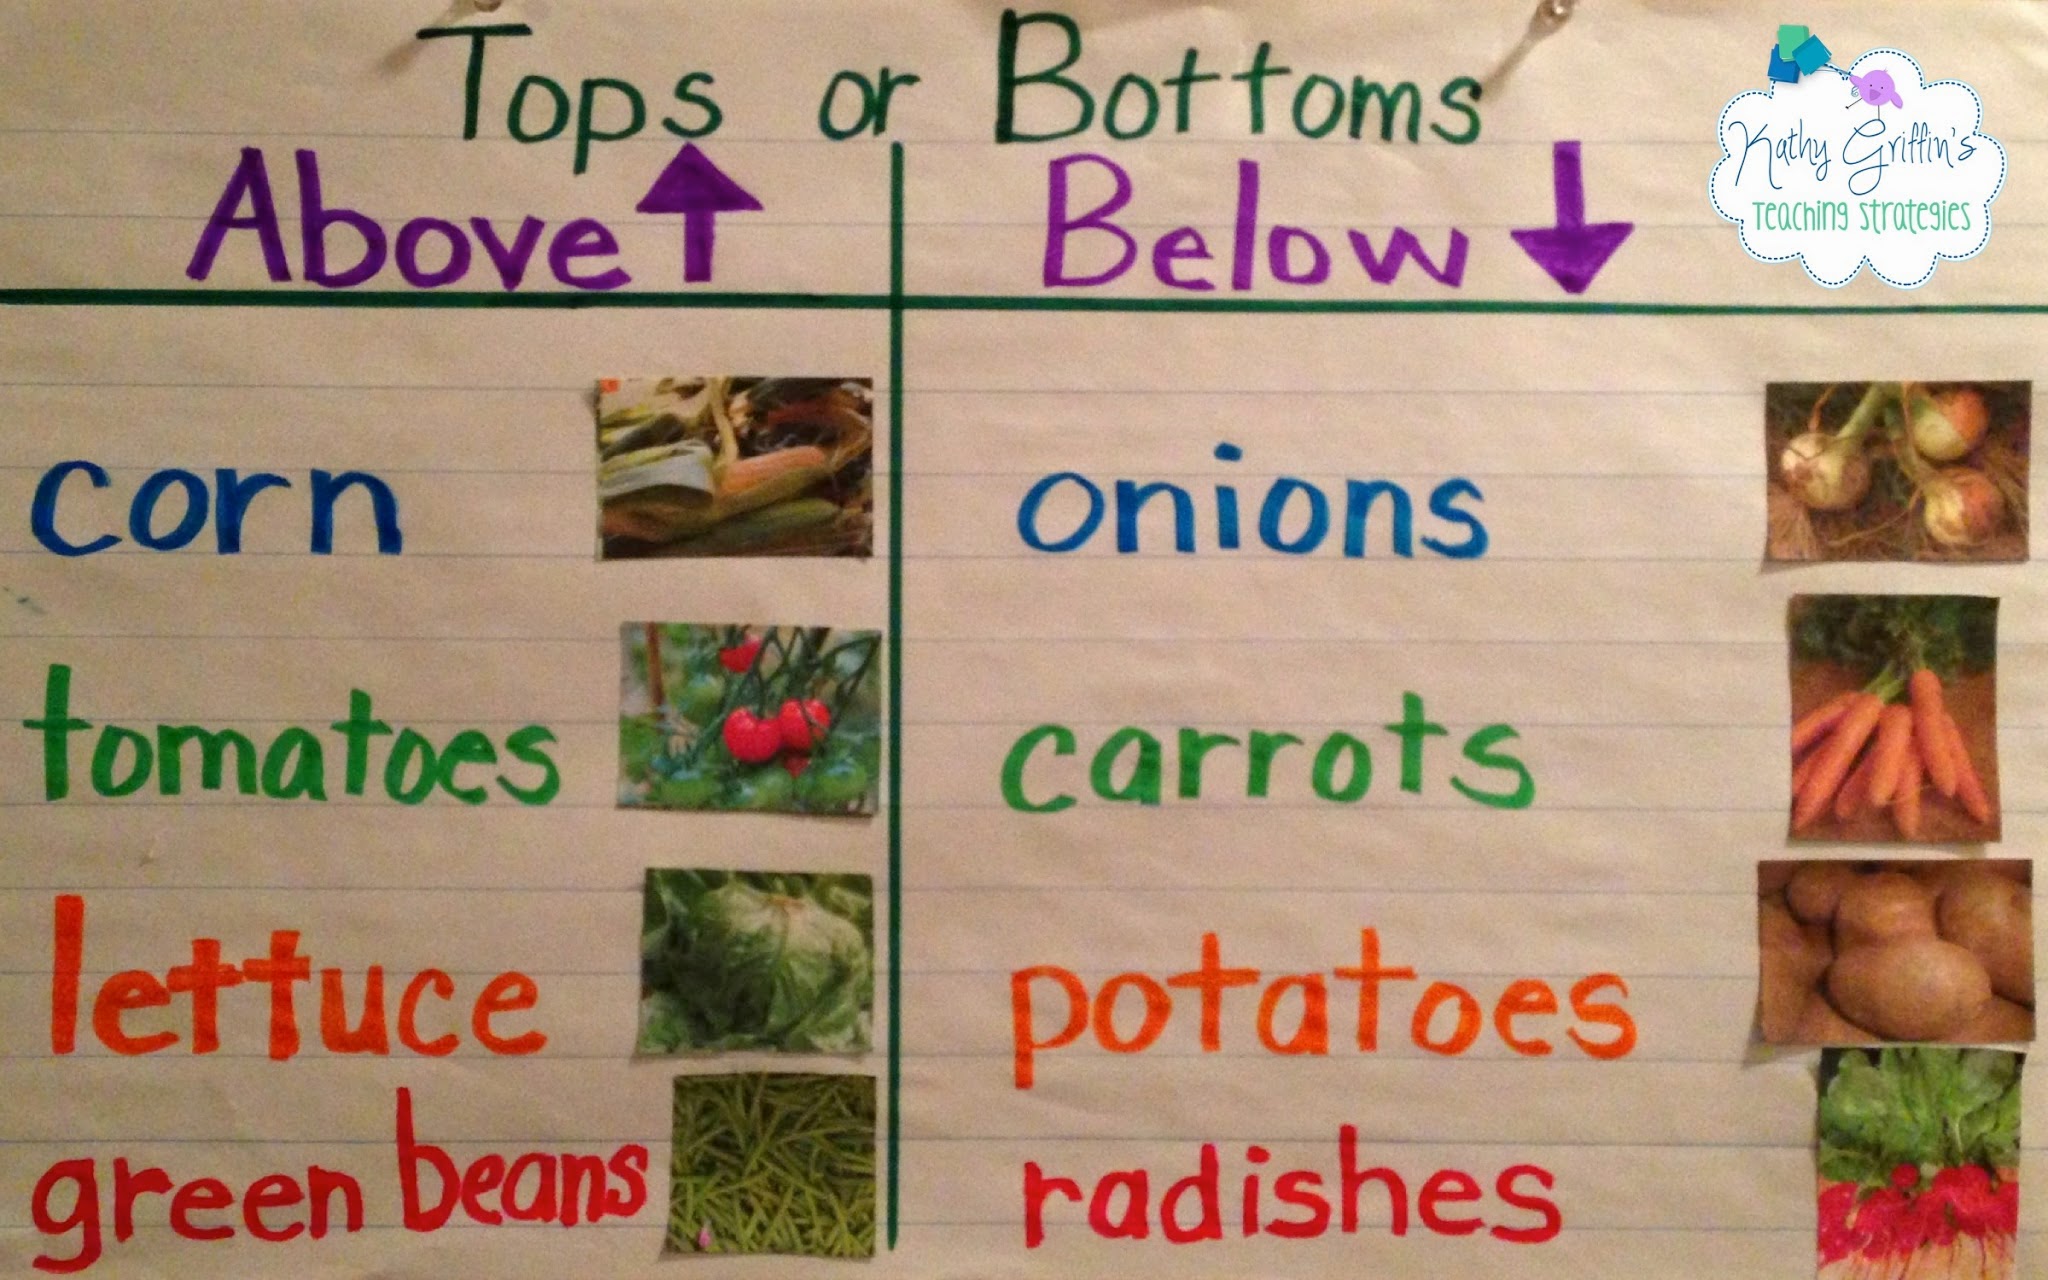 Tops or Bottoms
Above
Below
Kathy Griffin's
Teaching Strategies
corn
onions
tomatoes
carrots
lettuce
potatoes
green beans
radishes